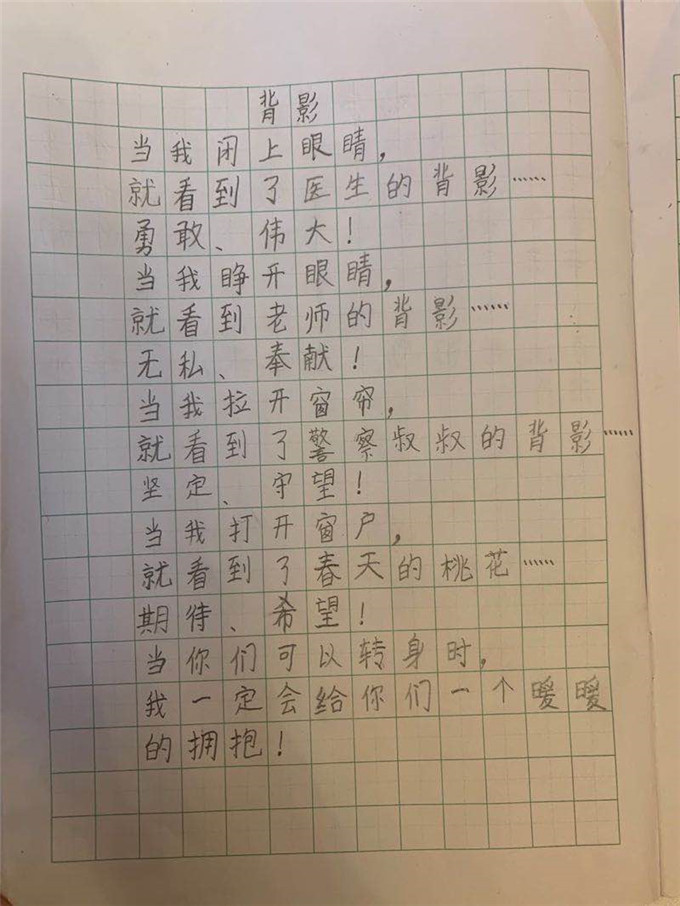 背影
当我闭上眼睛，
就看到了医生的背影……
勇敢、伟大！
当我睁开眼睛，
就看到老师的背影……
无私、奉献！
当我拉开窗帘，
就看到了警察叔叔的背影……
坚定、守望！
当我打开窗户，
就看到了春天的桃花……
期待、希望！
当你们可以转身时，
我一定会给你们一个暖暖
的拥抱！